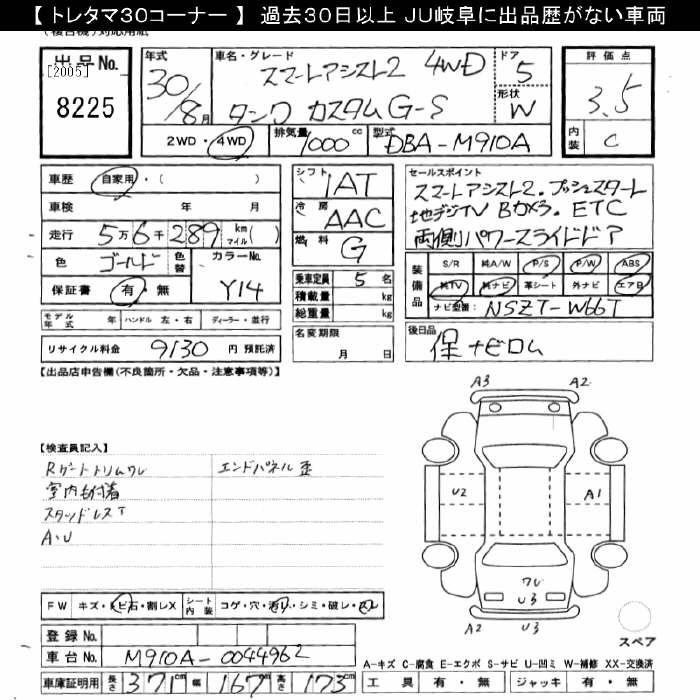 【 トレタマ30コーナー 】 過去30日以上 JU岐阜に出品歴がない車両
出品No.
[2005]
8225
年式
30/8月
車名・グレード
スマートアシスト2 4WD
タンク カスタムG-S
ドア
5
形状
W
評価点
3.5
内装
C
2WD・4WD
排気量
1000cc
型式
DBA-M910A
車歴 自家用・( )
車検 年 月
走行 5万6千289 km マイル( )
色 ゴールド 色替 カラーNo. Y14
保証書 有・無
シフト 1AT
冷房 AAC
燃料 G
乗車定員 5名
積載量 kg
総重量 kg
セールスポイント
スマートアシスト2.プッシュスタート
地デジTV Bカメラ.ETC
両側パワースライドドア
装備品
S/R 純A/W P/S P/W ABS
純TV 純ナビ 革シート 外ナビ エアB
ナビ型番: NSZT-W66T
モデル年式 年 ハンドル 左・右 ディーラー・並行
名変期限
月 日
後日品
保 ナビロム
リサイクル料金 9130 円 預託済
【出品店申告欄(不良箇所・欠品・注意事項等)】
【検査員記入】
Rゲートトリムワレ
エンドパネル歪
室内も付着
スタッドレスT
A.U
A3 A2
U2 A1
ワレ
U3
A2 U3
スペア
FW キズ・トビ石・割レX シート内装 コゲ・穴・汚レ・シミ・破レ・スレ
登録No.
車台No. M910A-0044962
車庫証明用 長さ 371cm 幅 167cm 高さ 173cm
A-キズ C-腐食 E-エクボ S-サビ U-凹ミ W-補修 XX-交換済
工具 有・無 ジャッキ 有・無